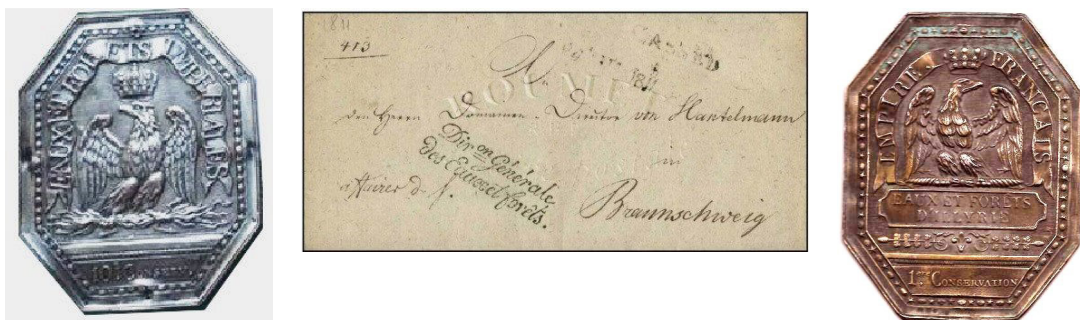 EAUX ET FORETS IMPERIALES
1811
413
CASSEL
An
den Herrn Domainen-Director von Hantelmann
in
Dir.on Générale
des Eaux et forêts.
affaires d. s.
Braunschweig
EMPIRE FRANÇAIS
EAUX ET FORETS
D'ILLYRIE
1re CONSERVATION